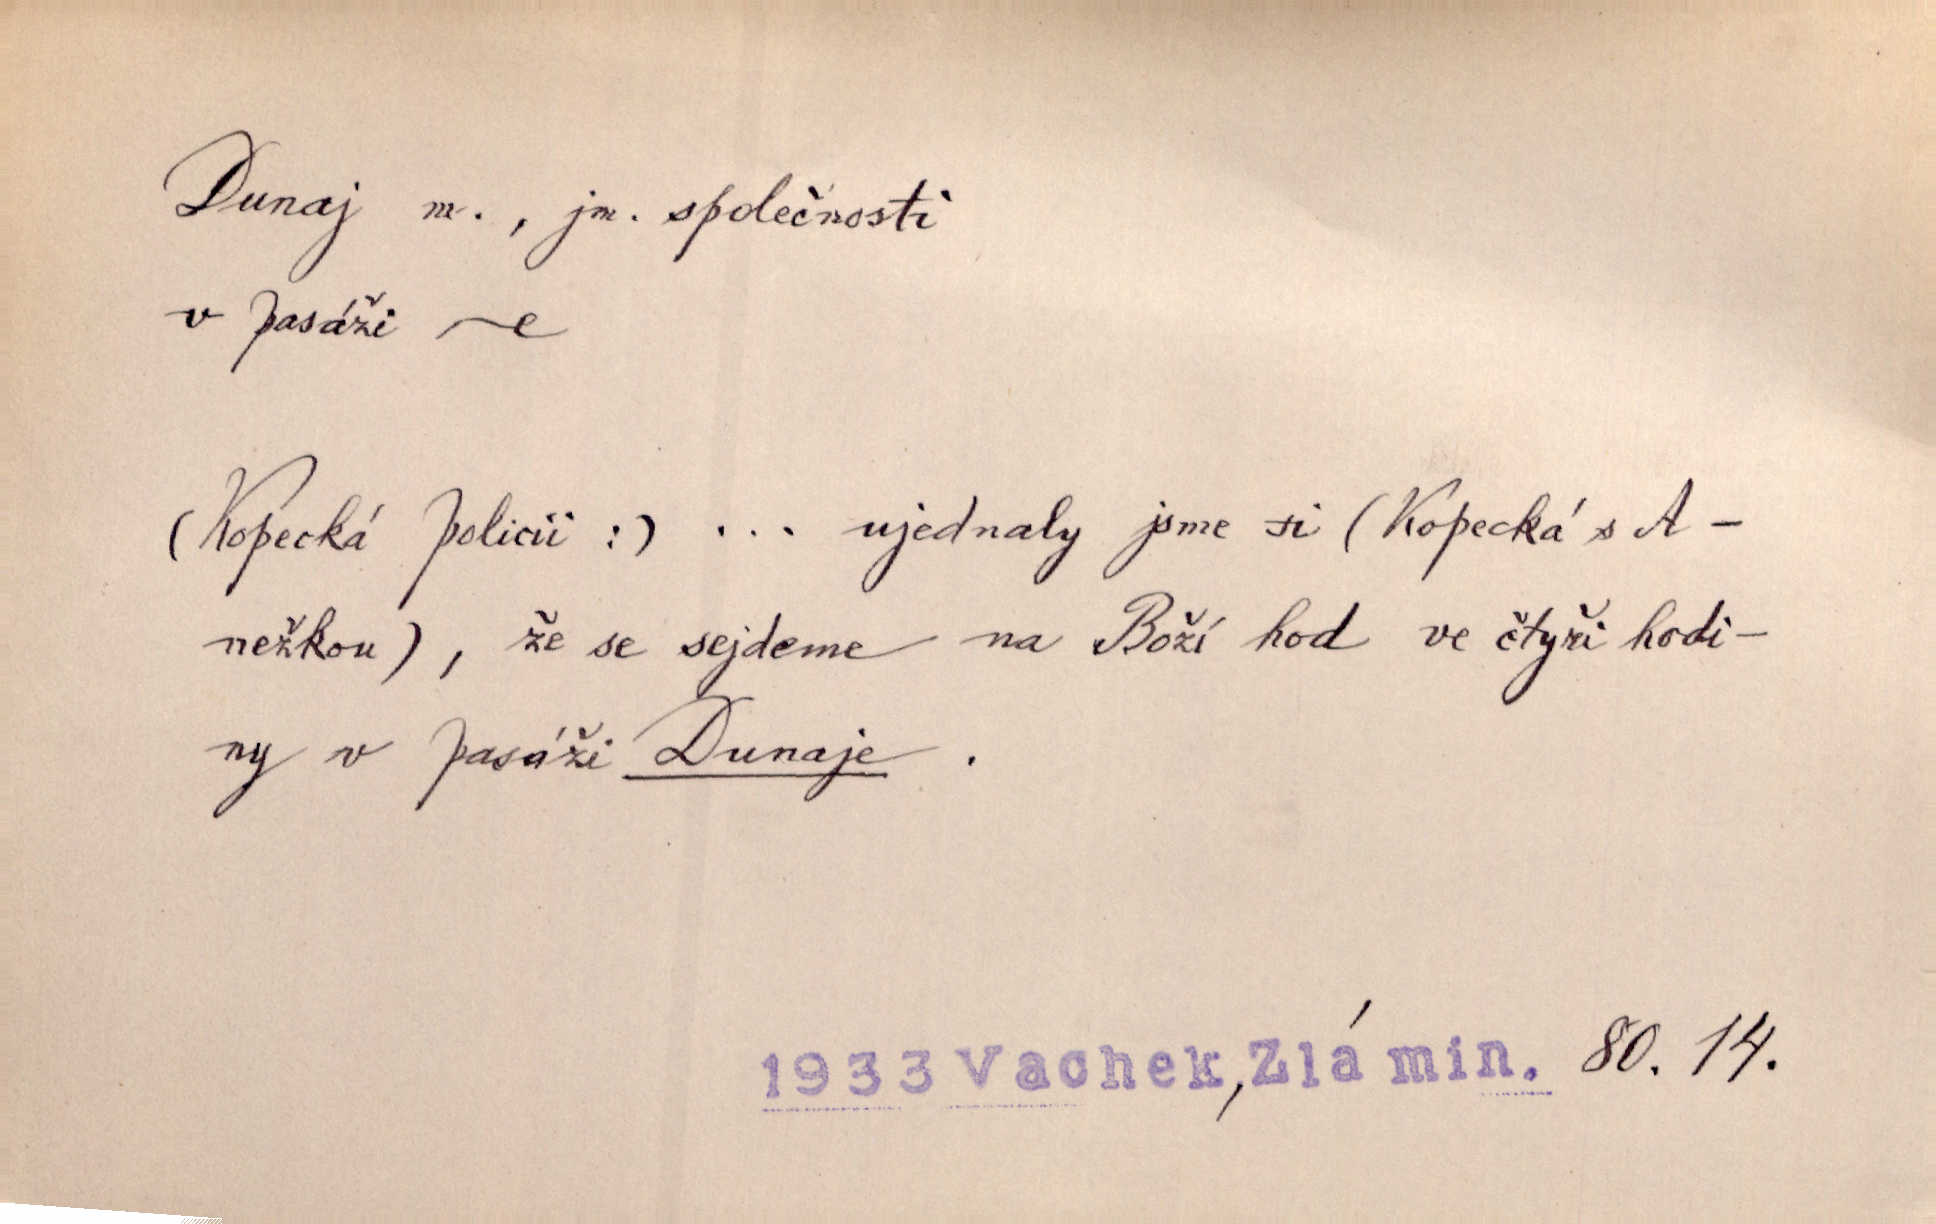 Dunaj m., jm. společnosti
v pasáži ~e
(Kopecká policii :) ... ujednaly jsme si (Kopecká s A-
nežkou), že se sejdeme na Boží hod ve čtyři hodi-
ny v pasáži Dunaje.
1933 Vachek, Zlá min. 80. 14.